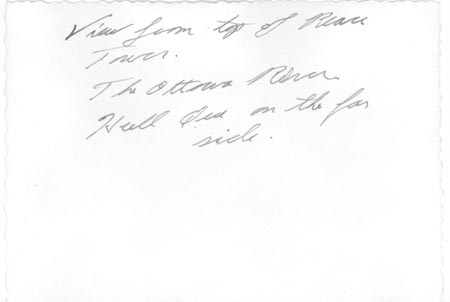 View from top of Peace
Tower.
The Ottawa River.
Hull Que on the far
side.